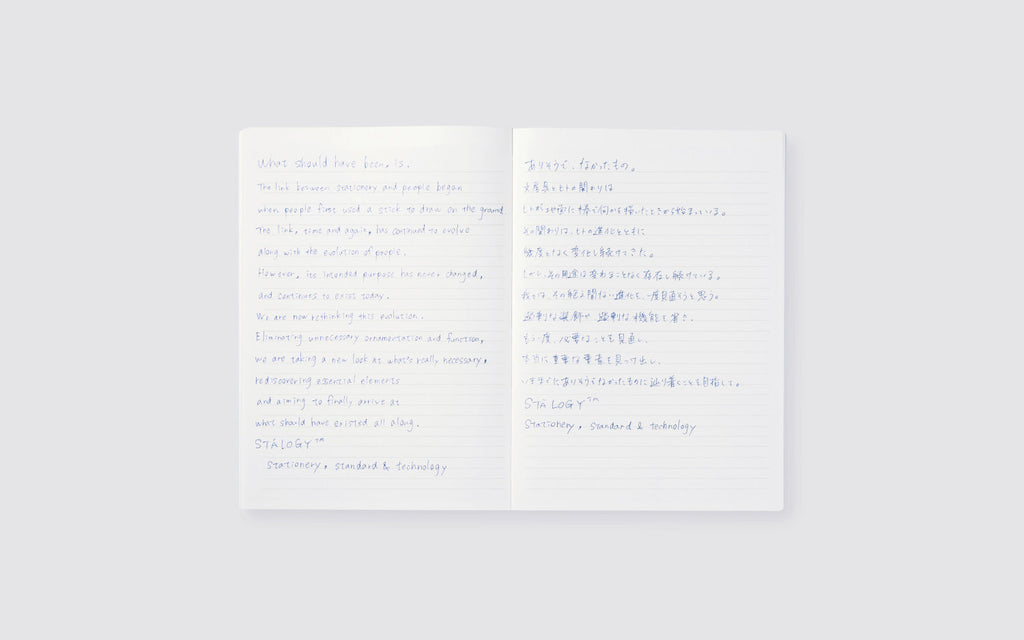 What should have been, is.
The link between stationery and people began
when people first used a stick to draw on the ground.
The link, time and again, has continued to evolve
along with the evolution of people.
However, its intended purpose has never changed,
and continues to exist today.
We are now rethinking this evolution.
Eliminating unnecessary ornamentation and function,
we are taking a new look at what's really necessary,
rediscovering essential elements
and aiming to finally arrive at
what should have existed all along.
STÁLOGY™
Stationery, standard & technology
ありそうで、なかったもの。
文房具とヒトの関わりは
ヒトが地面に棒で何かを描いたときから始まっている。
その関わりは、ヒトの進化とともに
幾度となく変化し続けてきた。
しかし、その用途は変わることなく存在し続けている。
我々は、その絶え間ない進化を、一度見直そうと思う。
過剰な装飾や 過剰な機能を省き、
もう一度、必要なことを見直し、
本当に重要な要素を見つけ出し、
いままでにありそうでなかったものに辿り着くことを目指して。
STÁLOGY™
Stationery, standard & technology